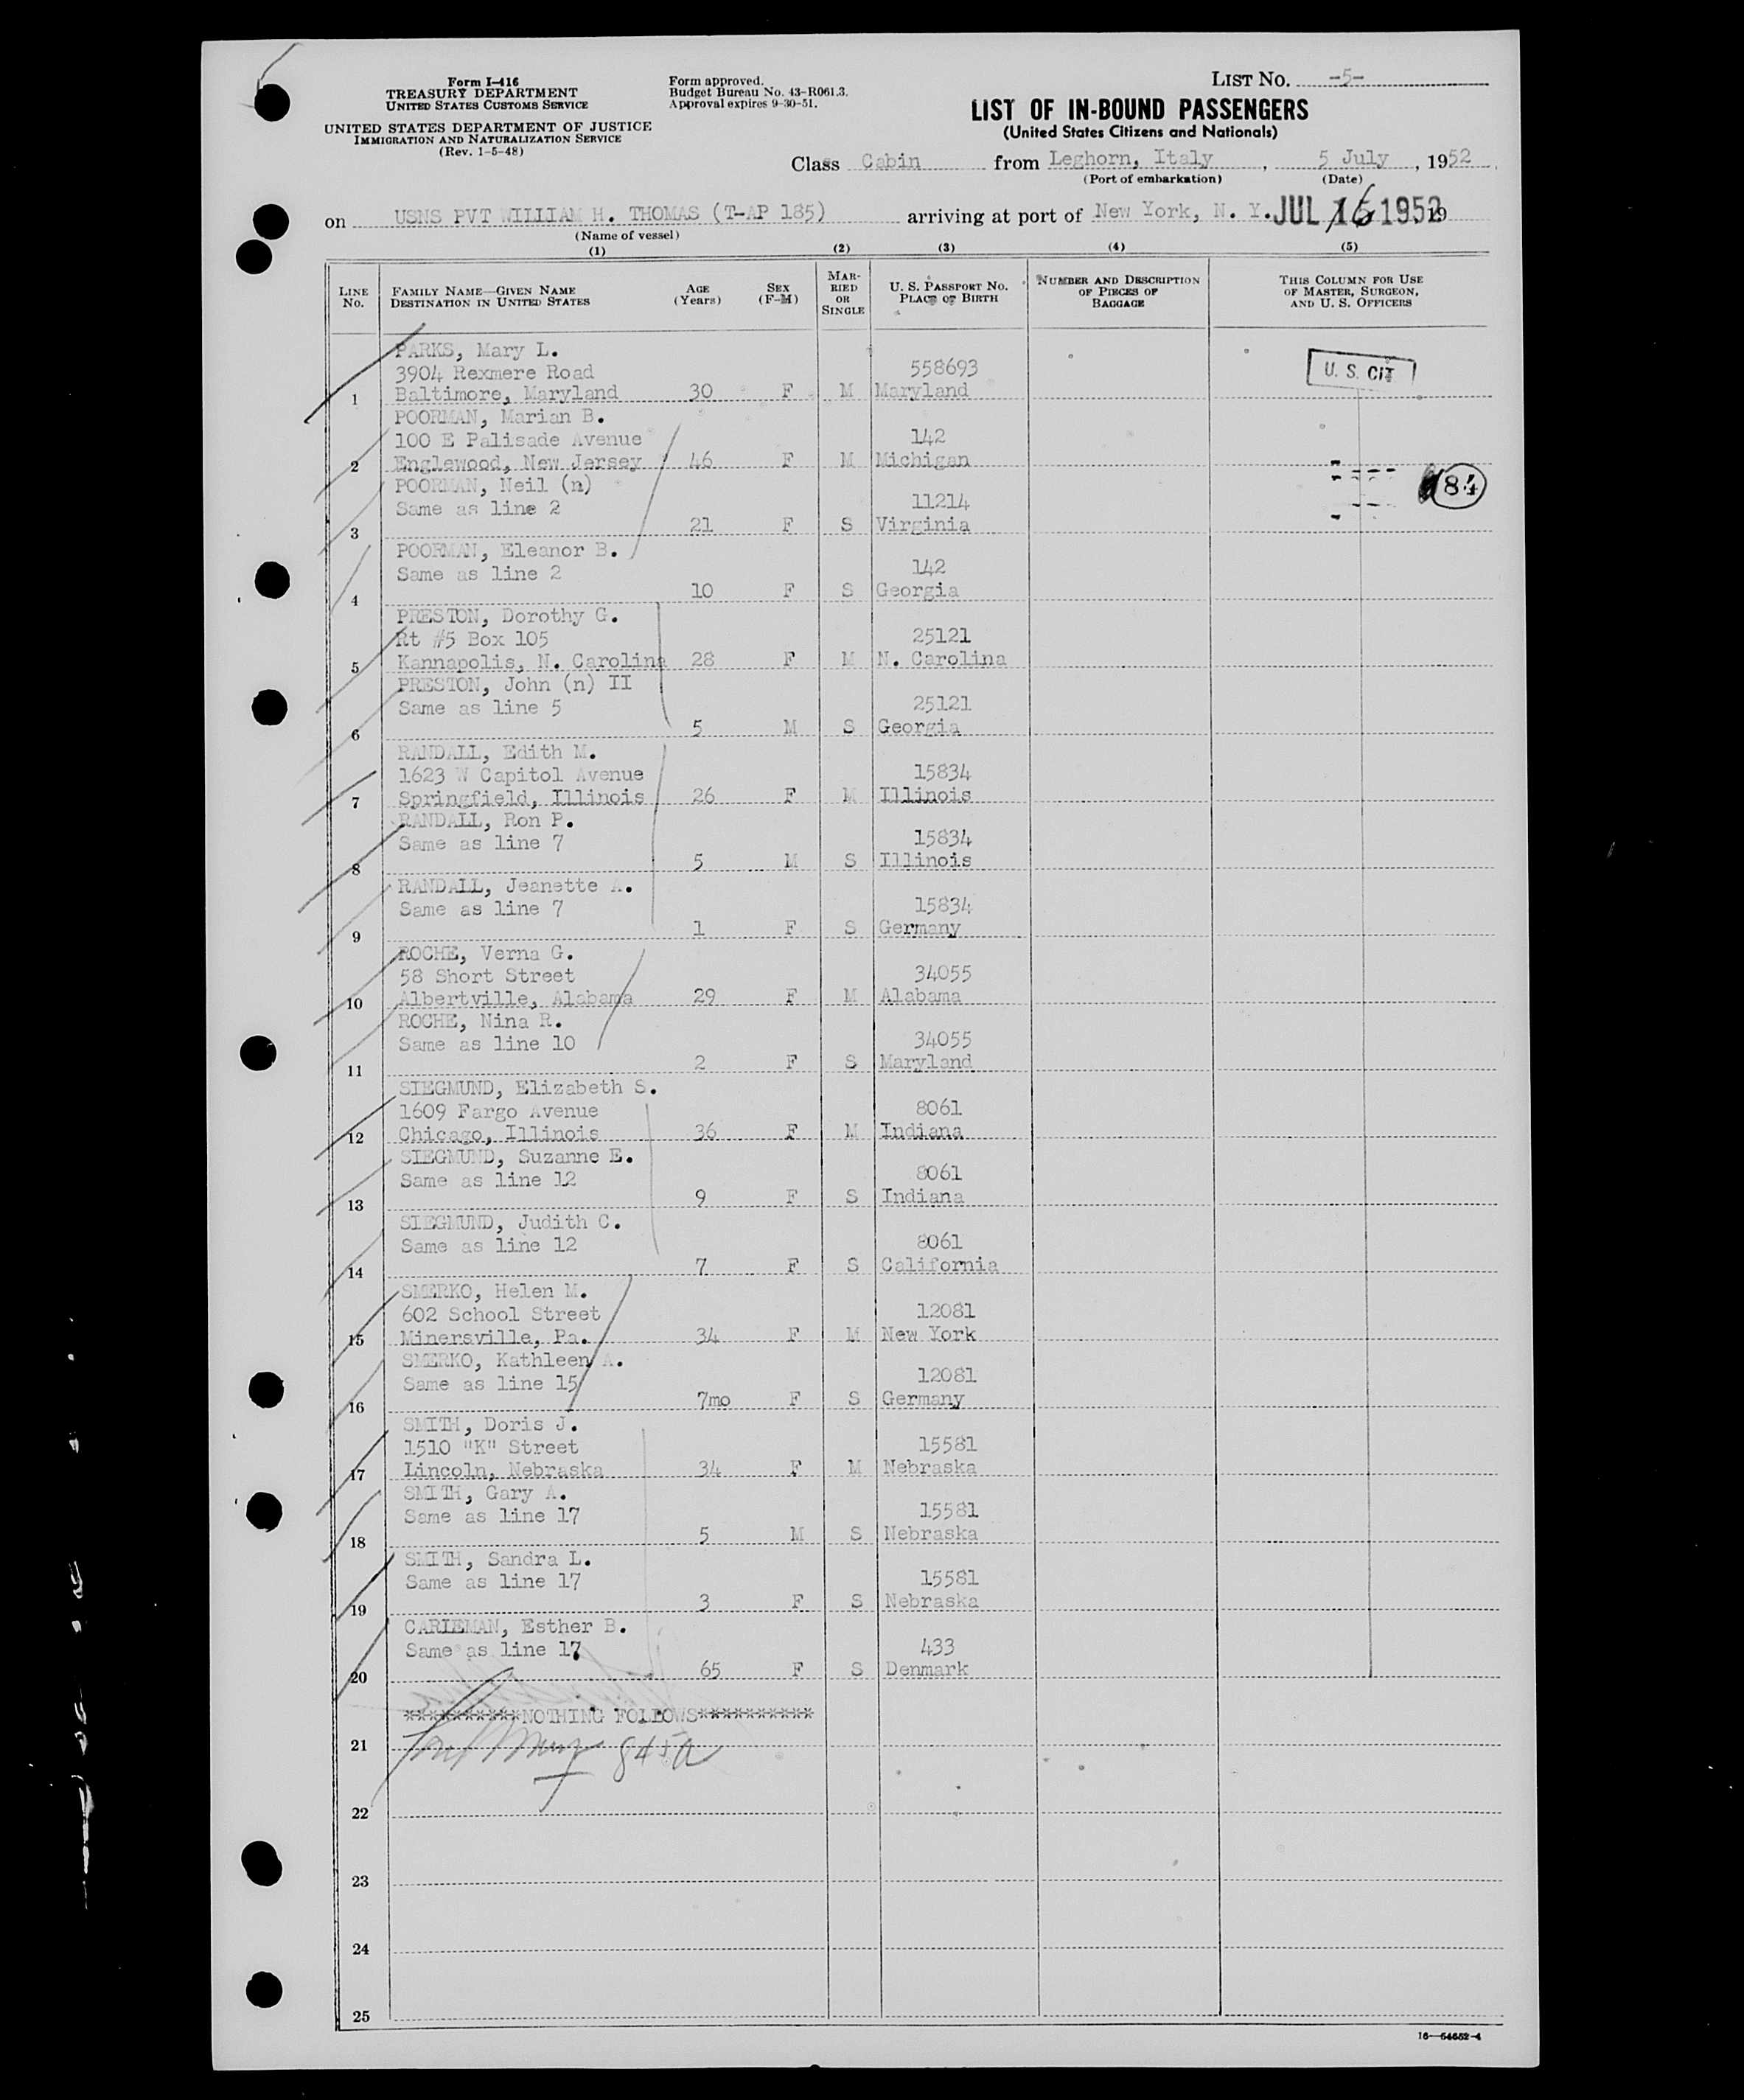 Form I-416
TREASURY DEPARTMENT
UNITED STATES CUSTOMS SERVICE
UNITED STATES DEPARTMENT OF JUSTICE
IMMIGRATION AND NATURALIZATION SERVICE
(Rev. 1-5-48)
Form approved.
Budget Bureau No. 43-R061.3.
Approval expires 9-30-51.
LIST NO. -5-
LIST OF IN-BOUND PASSENGERS
(United States Citizens and Nationals)
Class Cabin from Leghorn, Italy, 5 July, 1952
(Port of embarkation) (Date)
on USNS PVT WILLIAM H. THOMAS (T-AP 185) arriving at port of New York, N. Y. JUL 16 1952 19
(Name of vessel)
(1) (2) (3) (4) (5)
LINE NO. FAMILY NAME—GIVEN NAME DESTINATION IN UNITED STATES AGE (Years) SEX (F-M) MARRIED OR SINGLE U. S. PASSPORT NO. PLACE OF BIRTH NUMBER AND DESCRIPTION OF PIECES OF BAGGAGE THIS COLUMN FOR USE OF MASTER, SURGEON, AND U. S. OFFICERS
PARKS, Mary L.
3904 Rexmere Road 558693 U. S. CIT
1 Baltimore, Maryland 30 F M Maryland
POORMAN, Marian B.
100 E Palisade Avenue 142
2 Englewood, New Jersey 46 F M Michigan
POORMAN, Neil (n) 84
Same as line 2 11214
3 21 F S Virginia
POORMAN, Eleanor B.
Same as line 2 142
4 10 F S Georgia
PRESTON, Dorothy G.
Rt #5 Box 105 25121
5 Kannapolis, N. Carolina 28 F M N. Carolina
PRESTON, John (n) II
Same as line 5 25121
6 5 M S Georgia
RANDALL, Edith M.
1623 W Capitol Avenue 15834
7 Springfield, Illinois 26 F M Illinois
RANDALL, Ron P.
Same as line 7 15834
8 5 M S Illinois
RANDALL, Jeanette A.
Same as line 7 15834
9 1 F S Germany
ROCHE, Verna G.
58 Short Street 34055
10 Albertville, Alabama 29 F M Alabama
ROCHE, Nina R.
Same as line 10 34055
11 2 F S Maryland
SIEGMUND, Elizabeth S.
1609 Fargo Avenue 8061
12 Chicago, Illinois 36 F M Indiana
SIEGMUND, Suzanne E.
Same as line 12 8061
13 9 F S Indiana
SIEGMUND, Judith C.
Same as line 12 8061
14 7 F S California
SMERKO, Helen M.
602 School Street 12081
15 Minersville, Pa. 34 F M New York
SMERKO, Kathleen A.
Same as line 15 12081
16 7mo F S Germany
SMITH, Doris J.
1510 "K" Street 15581
17 Lincoln, Nebraska 34 F M Nebraska
SMITH, Gary A.
Same as line 17 15581
18 5 M S Nebraska
SMITH, Sandra L.
Same as line 17 15581
19 3 F S Nebraska
CARLEMAN, Esther B.
Same as line 17 433
20 65 F S Denmark
**********NOTHING FOLLOWS**********
21
22
23
24
25
16—54652-4